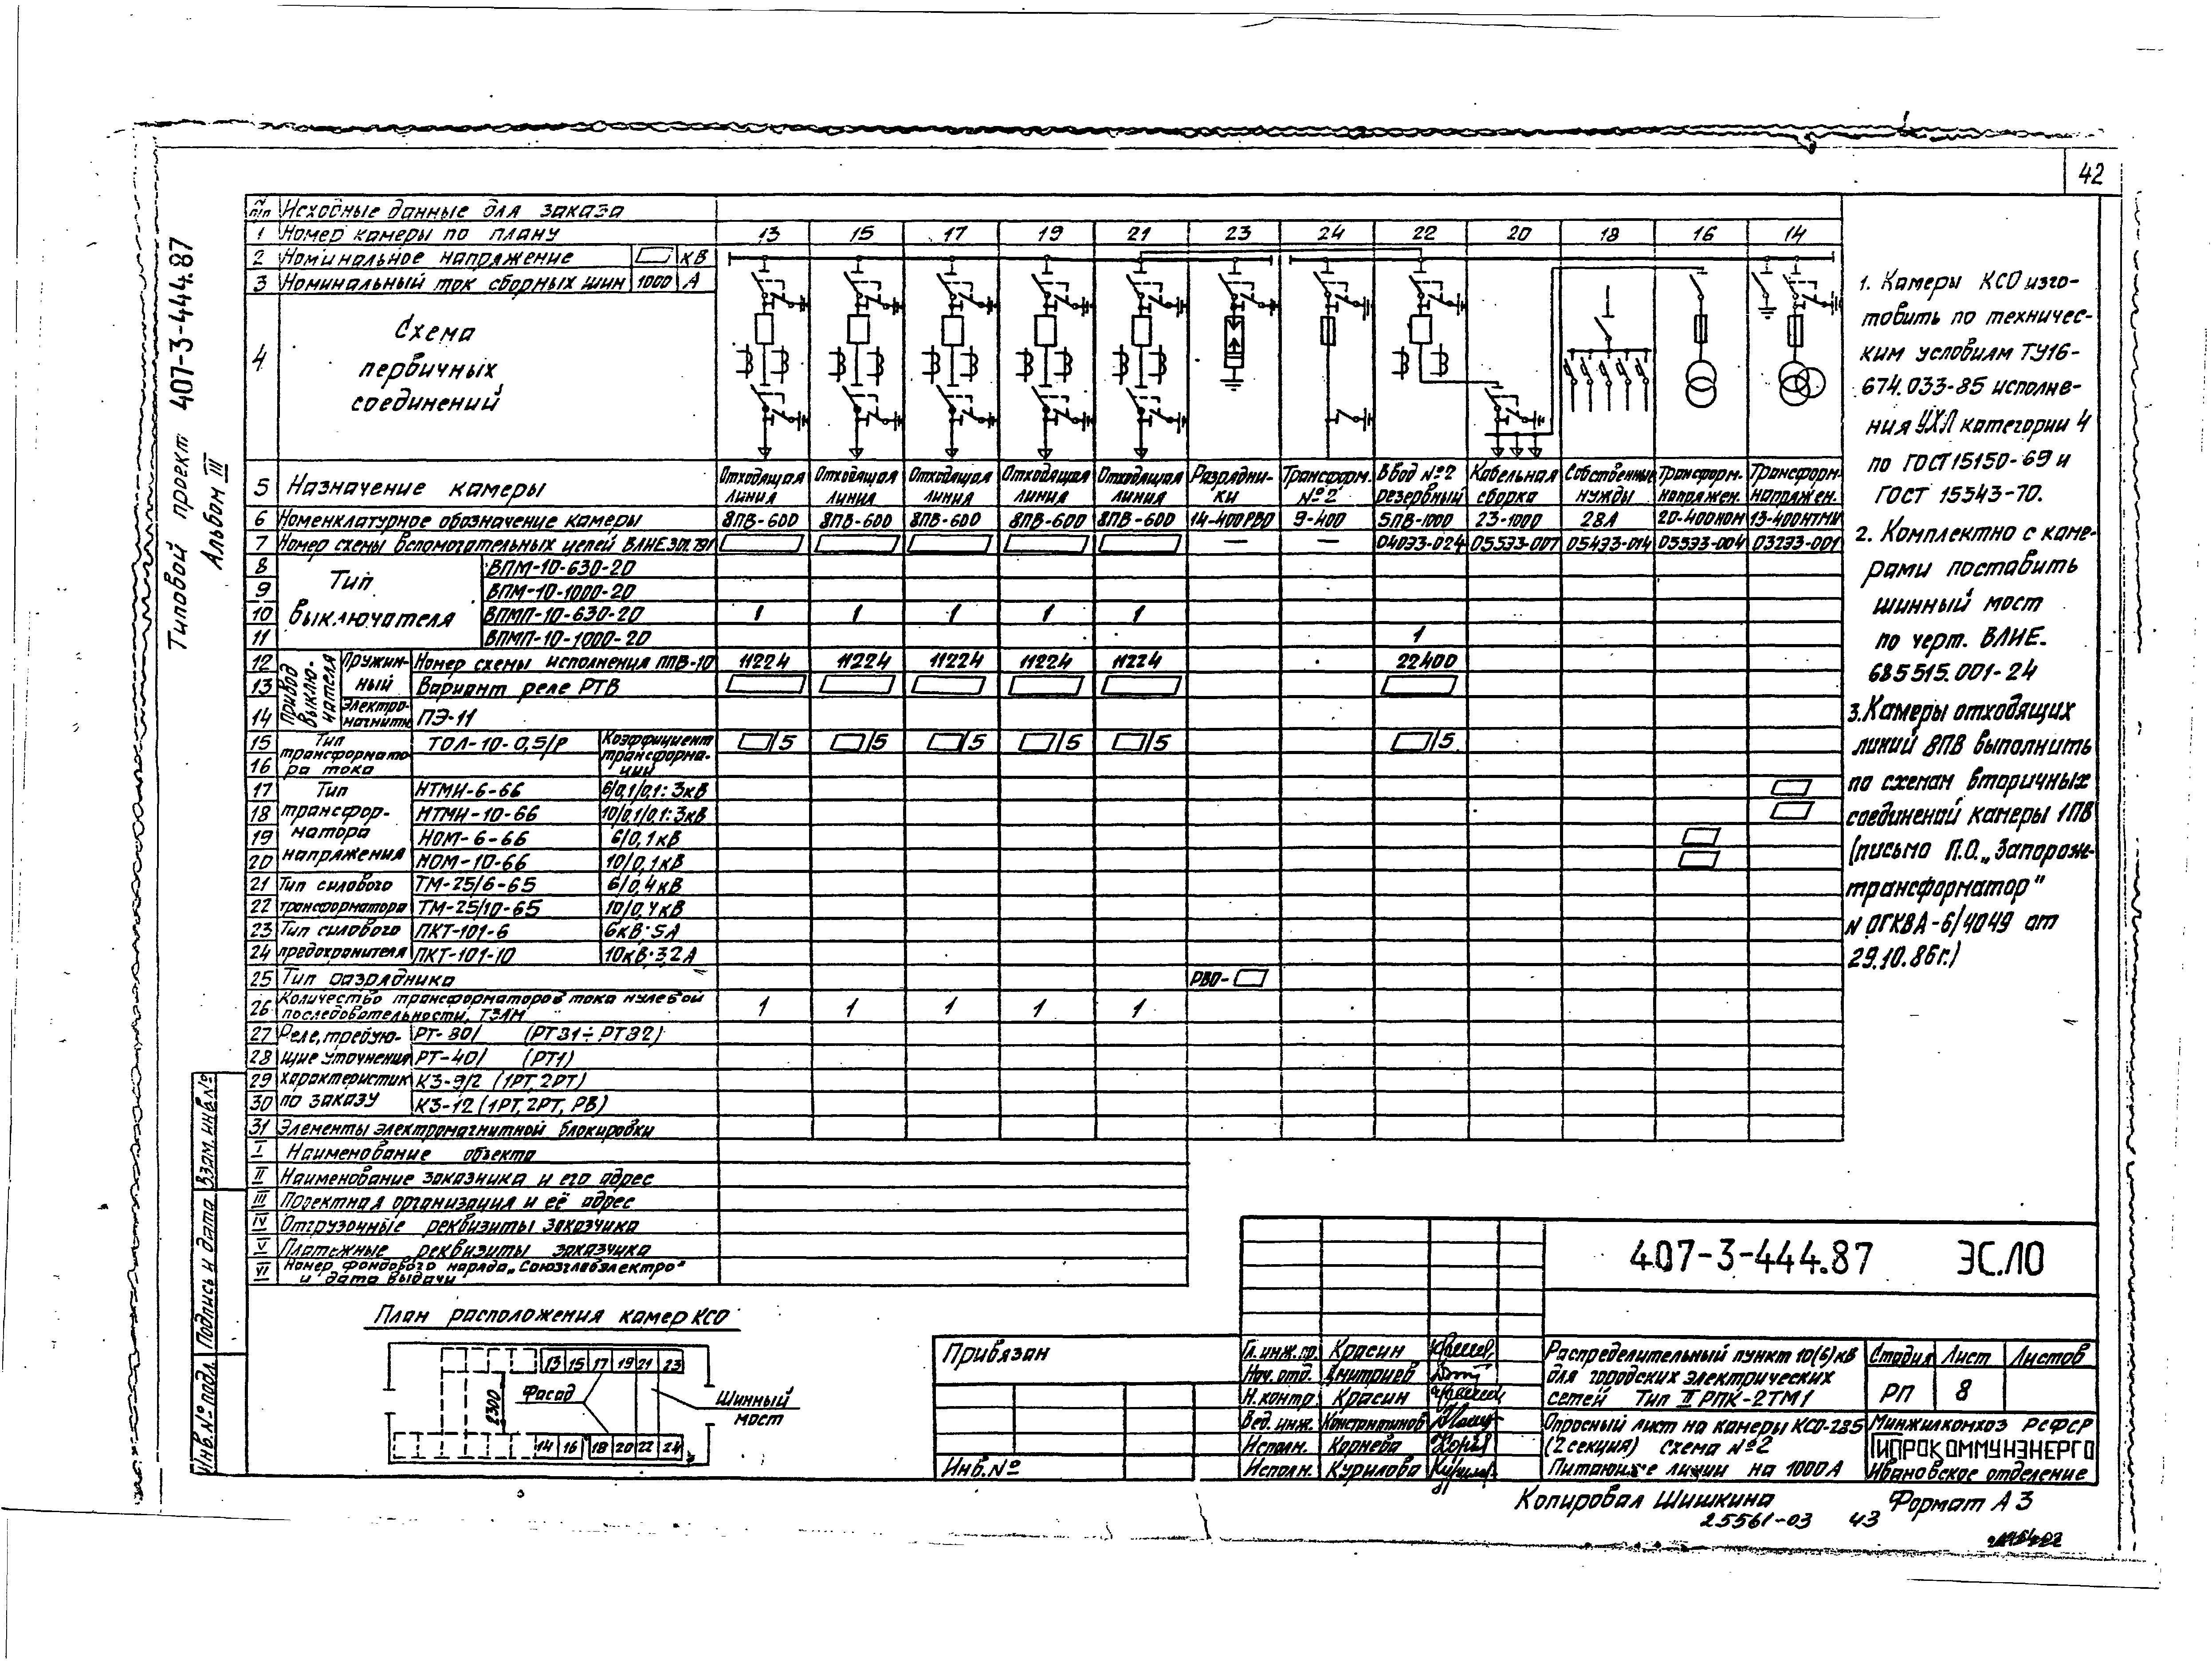 42
Типовой проект 407-3-444.87
Альбом III
№ п/п Исходные данные для заказа
1 Номер камеры по плану 13 15 17 19 21 23 24 22 20 18 16 14
2 Номинальное напряжение кВ
3 Номинальный ток сборных шин 1000 А
4 Схема
первичных
соединений
5 Назначение камеры
Отходящая линия
Отходящая линия
Отходящая линия
Отходящая линия
Отходящая линия
Разрядники
Трансформ. №2
Ввод №2 резервный
Кабельная сборка
Собственные нужды
Трансформ. напряжен.
Трансформ. напряжен.
6 Номенклатурное обозначение камеры 8ПВ-600 8ПВ-600 8ПВ-600 8ПВ-600 8ПВ-600 14-400РВО 9-400 5ПВ-1000 23-1000 28А 20-400НОМ 13-400НТМИ
7 Номер схемы вспомогательных цепей ВЛИЕ.301.791 — —
8 Тип выключателя ВПМ-10-630-20
9 ВПМ-10-1000-20
10 ВПМП-10-630-20 1 1 1 1 1
11 ВПМП-10-1000-20 1
12 Привод выключателя Пружинный Номер схемы исполнения ППВ-10 11224 11224 11224 11224 11224 22400
13 Вариант реле РТВ
14 Электромагнитн. ПЭ-11
15 Тип трансформатора тока ТОЛ-10-0,5/Р Коэффициент трансформации /5 /5 /5 /5 /5 /5
16
17 Тип трансформатора напряжения НТМИ-6-66 6/0,1/0,1:3кВ
18 НТМИ-10-66 10/0,1/0,1:3кВ
19 НОМ-6-66 6/0,1кВ
20 НОМ-10-66 10/0,1кВ
21 Тип силового ТМ-25/6-65 6/0,4кВ
22 трансформатора ТМ-25/10-65 10/0,4кВ
23 Тип силового ПКТ-101-6 6кВ; 5А
24 предохранителя ПКТ-101-10 10кВ; 3,2А
25 Тип разрядника РВО-
26 Количество трансформаторов тока нулевой последовательности, ТЗЛМ 1 1 1 1 1
27 Реле, требую- РТ-80/ (РТ31÷РТ32)
28 щие уточнения РТ-40/ (РТ1)
29 характеристик КЗ-9/2 (1РТ,2РТ)
30 по заказу КЗ-12 (1РТ,2РТ, РВ)
31 Элементы электромагнитной блокировки
I Наименование объекта
II Наименование заказчика и его адрес
III Проектная организация и её адрес
IV Отгрузочные реквизиты заказчика
V Платежные реквизиты заказчика
VI Номер фондового наряда „Союзглавэлектро"
и дата выдачи
1. Камеры КСО изго-
товить по техничес-
ким условиям ТУ16-
674.033-85 исполне-
ния УХЛ категории 4
по ГОСТ15150-69 и
ГОСТ 15543-70.
2. Комплектно с каме-
рами поставить
шинный мост
по черт. ВЛИЕ.
685515.001-24
3. Камеры отходящих
линий 8ПВ выполнить
по схемам вторичных
соединений камеры 1ПВ
(письмо П.О. „Запорож-
трансформатор"
N ОГКВА-6/4049 от
29.10.86г.)
План расположения камер КСО
13 15 17 19 21 23
Фасад
2300
Шинный
мост
14 16 18 20 22 24
Привязан
Инв.№
407-3-444.87 ЭС.ЛО
Гл.инж.пр. Красин
Нач.отд. Дмитриев
Н.контр. Красин
Вед.инж. Константинов
Исполн. Корнева
Исполн. Курилова
Распределительный пункт 10(6)кВ
для городских электрических
сетей Тип II РПК-2ТМ1
Стадия Лист Листов
РП 8
Опросный лист на камеры КСО-285
(2 секция) схема №2
Питающие линии на 1000А
Минжилкомхоз РСФСР
ГИПРОКОММУНЭНЕРГО
Ивановское отделение
Копировал Шишкина
Формат А3
25561-03 43
Взам.инв.№
Подпись и дата
Инв.№ подл.